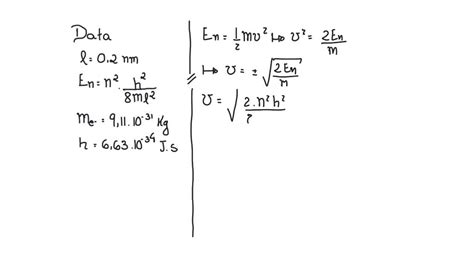 Data
l = 0.2 nm
En = n² · h²/8ml²
me⁻ = 9,11·10⁻³¹ Kg
h = 6,63·10⁻³⁴ J.s
En = 1/2 mv² ↦ v² = 2En/m
↦ v = ± √(2En/m)
v = √(2·n²h²/